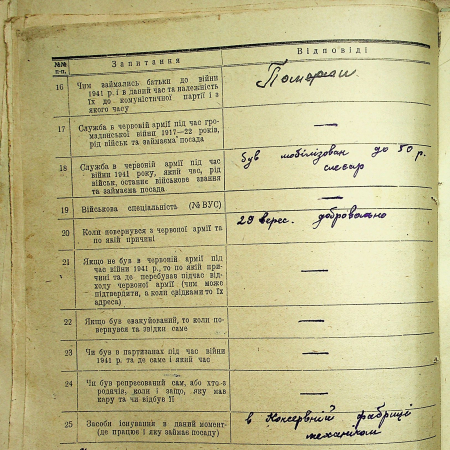 №№ п-п. Запитання Відповіді
16 Чим займались батьки до війни
1941 р. і в даний час та належність
їх до комуністичної партії і з
якого часу
Померли
17 Служба в червоній армії під час гро-
мадянської війни 1917—22 років,
рід військ та займаєма посада
—
18 Служба в червоній армії під час
війни 1941 року, який час, рід
військ, останнє військове звання
та займаєма посада
був мобілізован до 50 р.
слесар
19 Військова спеціальність (№ ВУС)
—
20 Коли повернувся з червоної армії та
по якій причині
29 верес. добровольно
21 Якщо не був в червоній армії під
час війни 1941 р., то по якій при-
чині та де перебував підчас від-
ходу червоної армії (чим може
підтвердити, а коли свідками то їх
адреса)
—
22 Якщо був евакуйований, то коли по-
вернувся та звідки саме
—
23 Чи був в партизанах під час війни
1941 р. та де саме і який час
—
24 Чи був репресований сам, або хто-з
родичів, коли і защо, яку мав
кару та чи відбув її
—
25 Засоби існування в даний момент
(де працює і яку займає посаду)
в Консервній фабриці
механіком